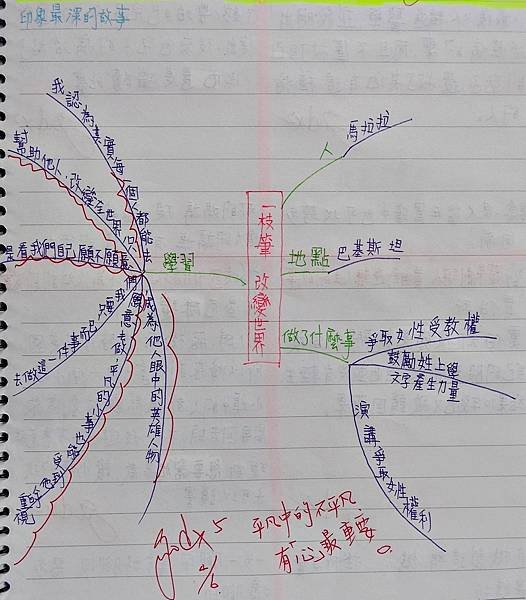 印象最深的故事
一枝筆 改變世界
人
馬拉拉
地點
巴基斯坦
做了什麼事
爭取女性受教權
鼓勵姓上學
文字產生力量
演講爭取女性權利
學習
我認為其實每一個人都能去
幫助他人,改變全世界,只
是看我們自己願不願意
去做這一件事而已
只要我
們願意去做,平凡的小事也
重視
成為他人眼中的英雄人物
good x 5
平凡中的不平凡
有「心」最重要。